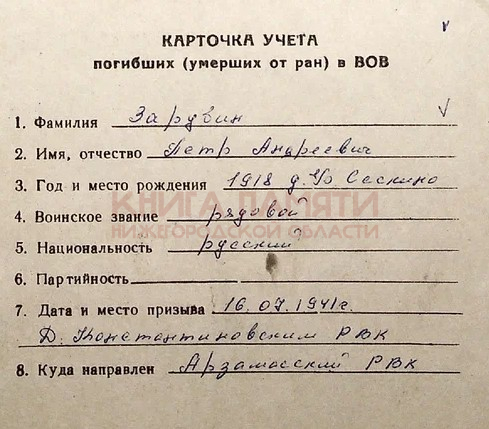 КАРТОЧКА УЧЕТА
погибших (умерших от ран) в ВОВ
1. Фамилия Зарувин
2. Имя, отчество Петр Андреевич
3. Год и место рождения 1918 д. Сескино
4. Воинское звание рядовой
КНИГА ПАМЯТИ
НИЖЕГОРОДСКОЙ ОБЛАСТИ
5. Национальность русский
6. Партийность
7. Дата и место призыва 16.07.1941г.
Д. Константиновским РВК
8. Куда направлен Арзамасский РВК